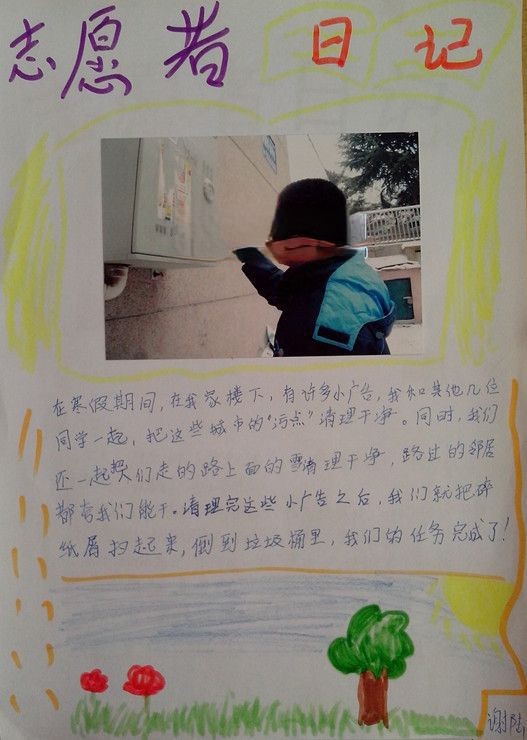 志愿者日记
在寒假期间,在我家楼下,有许多小广告,我和其他几位
同学一起,把这些城市的“污点”清理干净。同时,我们
还一起把人们走的路上面的雪清理干净,路过的邻居
都夸我们能干。清理完这些小广告之后,我们就把碎
纸屑扫起来,倒到垃圾桶里,我们的任务完成了!
谢陆